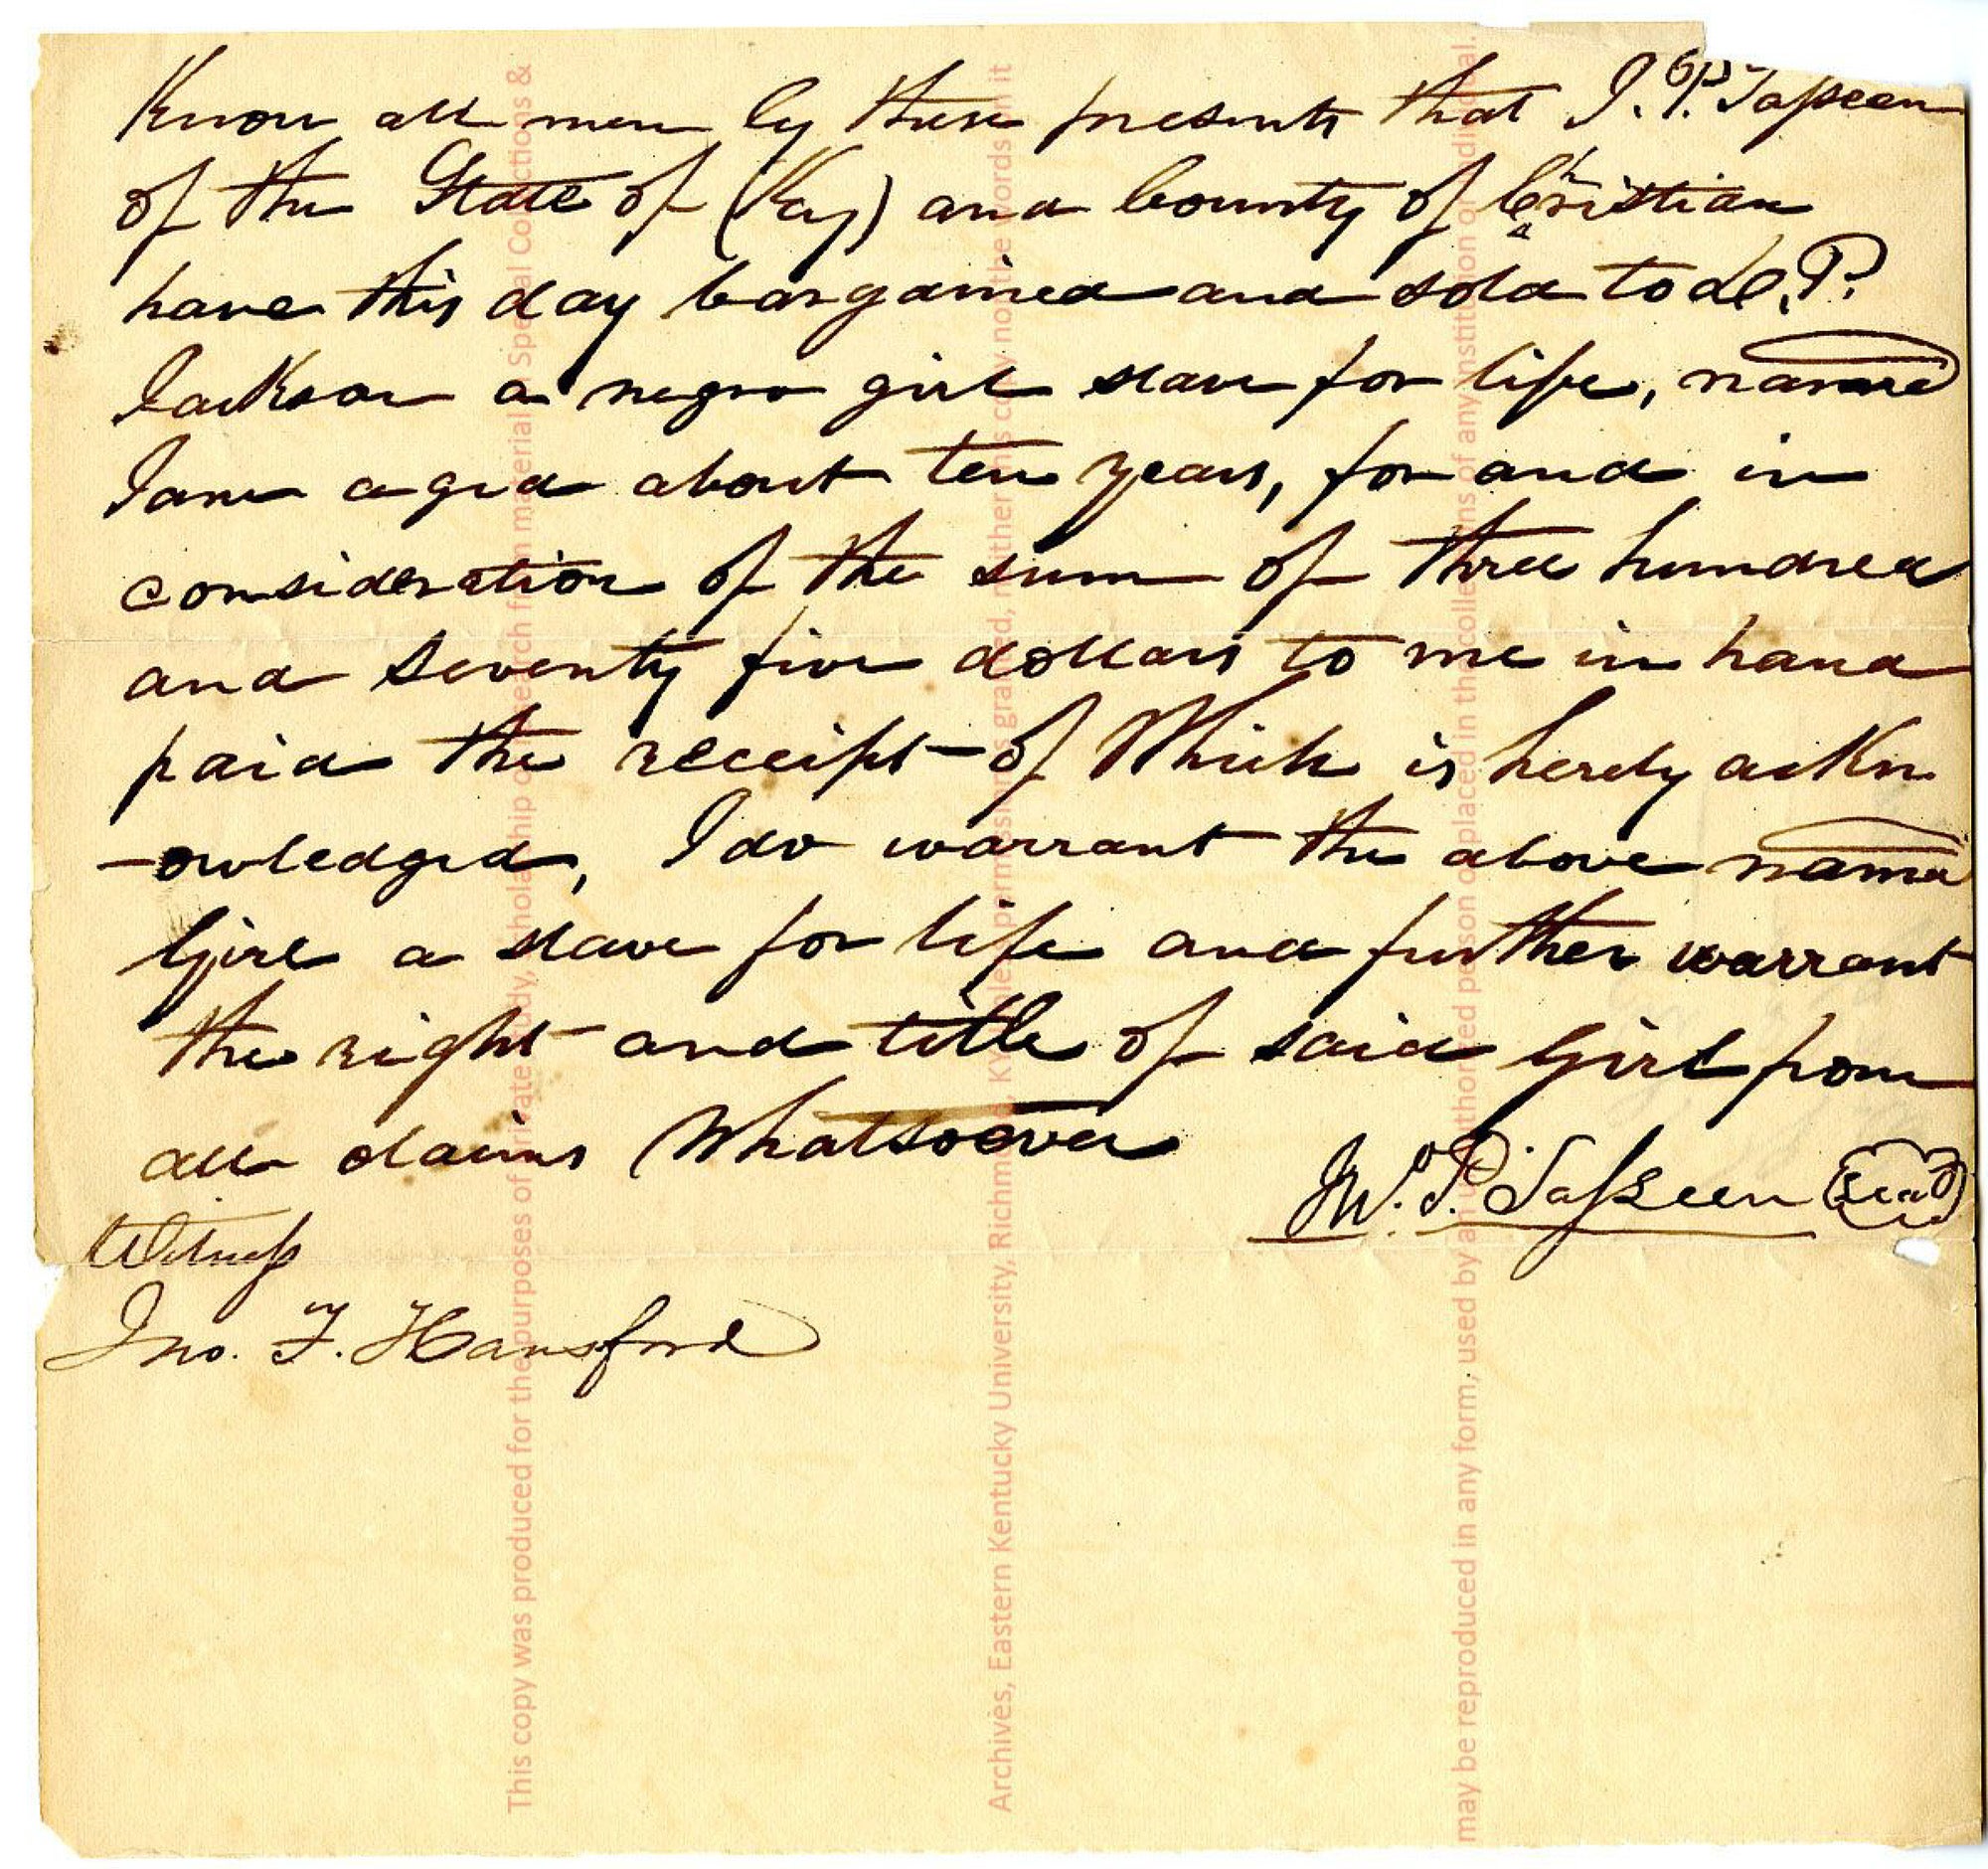 Know all men by these presents that I. P. Tasseen
of the State of (Kay) and County of Christian
have this day bargained and sold to P.
Jackson a negro girl slave for life, named
Jane aged about ten years, for and in
consideration of the sum of three hundred
and seventy five dollars to me in hand
paid the receipt of Which is herely ackn
-owledged, I do warrant the above named
Girl a slave for life and further warrant
the right and title of said Girl from
all claims Whatsoever
W. P. Tasseen (Seal)
Witness
Jno. F. Hansford
This copy was produced for the purposes of private study, scholarship or research from material Special Collections &
Archives, Eastern Kentucky University, Richmond, KY. Unless permission is granted, neither this copy nor the words on it
may be reproduced in any form, used by an unauthorized person or placed in the collections of any institution or individual.